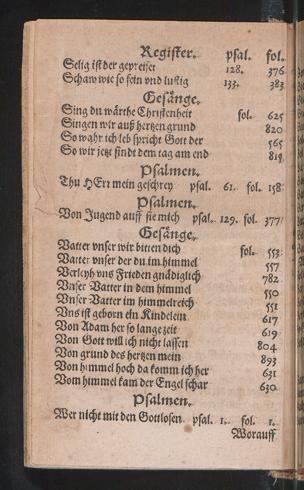 Register. psal. fol.
Selig ist der gepreiset 128. 376
Schaw wie so fein vnd lustig 133. 383
Gesänge.
Sing du wärthe Christenheit fol. 625
Singen wir auß hertzen grund 820
So wahr ich leb spricht Gott der 565
So wir jetzt sindt dem tag am end 819
Psalmen.
Thu HErr mein geschrey psal. 61. fol. 158
Psalmen.
Von Jugend auff sie mich psal. 129. fol. 377
Gesänge.
Vatter vnser wir bitten dich fol. 553
Vatter vnser der du im himmel 557
Verleyh vns Frieden gnädiglich 782
Vnser Vatter in dem himmel 550
Vnser Vatter im himmelreich 551
Vns ist geborn ein Kindelein 617
Von Adam her so lange zeit 619
Von Gott will ich nicht lassen 804
Von grund des hertzen mein 893
Von himmel hoch da komm ich her 631
Vom himmel kam der Engel schar 630
Psalmen.
Wer nicht mit den Gottlosen psal. 1. fol. 1.
Worauff